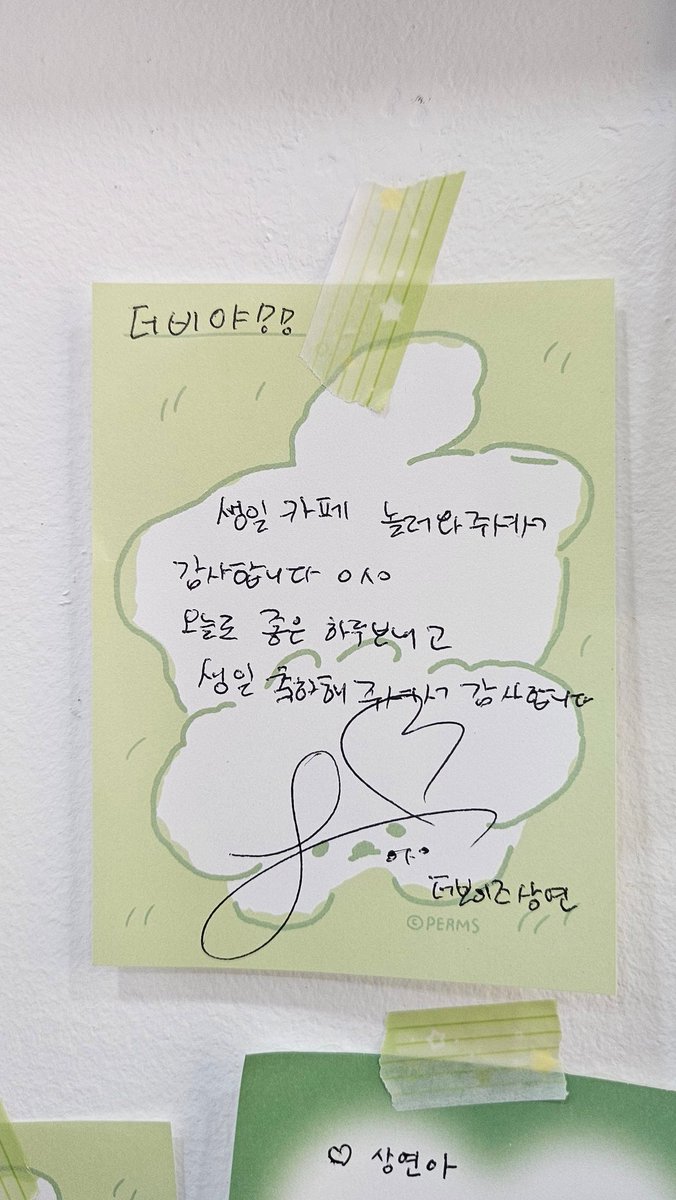 더비야!!
생일 카페 놀러와주셔서
감사합니다 ㅇㅅㅇ
오늘도 좋은 하루보내고
생일 축하해 주셔서 감사합니다
더보이즈 상연
©PERMS
♡ 상연아